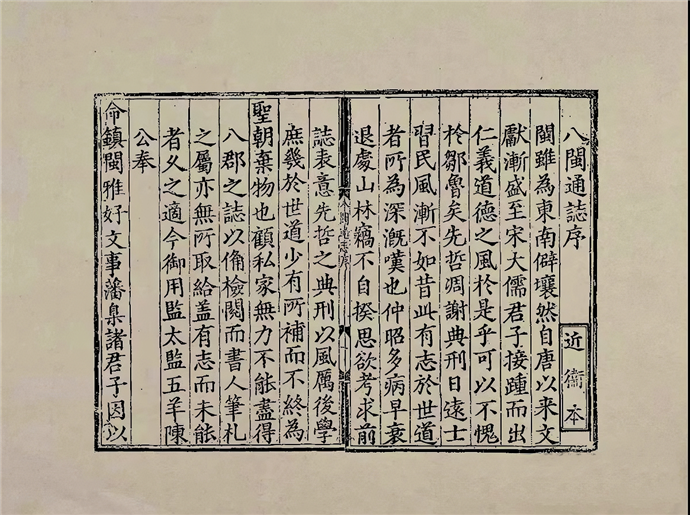 八閩通誌序
近衞本
閩雖為東南僻壤然自唐以来文
獻漸盛至宋大儒君子接踵而出
仁義道德之風於是乎可以不愧
於鄒魯矣先哲凋謝典刑日遠士
習民風漸不如昔此有志於世道
者所為深慨嘆也仲昭多病早衰
退處山林竊不自揆思欲考求前
誌表意先哲之典刑以風厲後學
庶幾於世道少有所補而不終為
聖朝棄物也顧私家無力不能盡得
八郡之誌以俻檢閱而書人筆札
之屬亦無所取給盖有志而未能
者久之適今御用監太監五羊陳
公奉
命鎮閩雅好文事藩臬諸君子因以